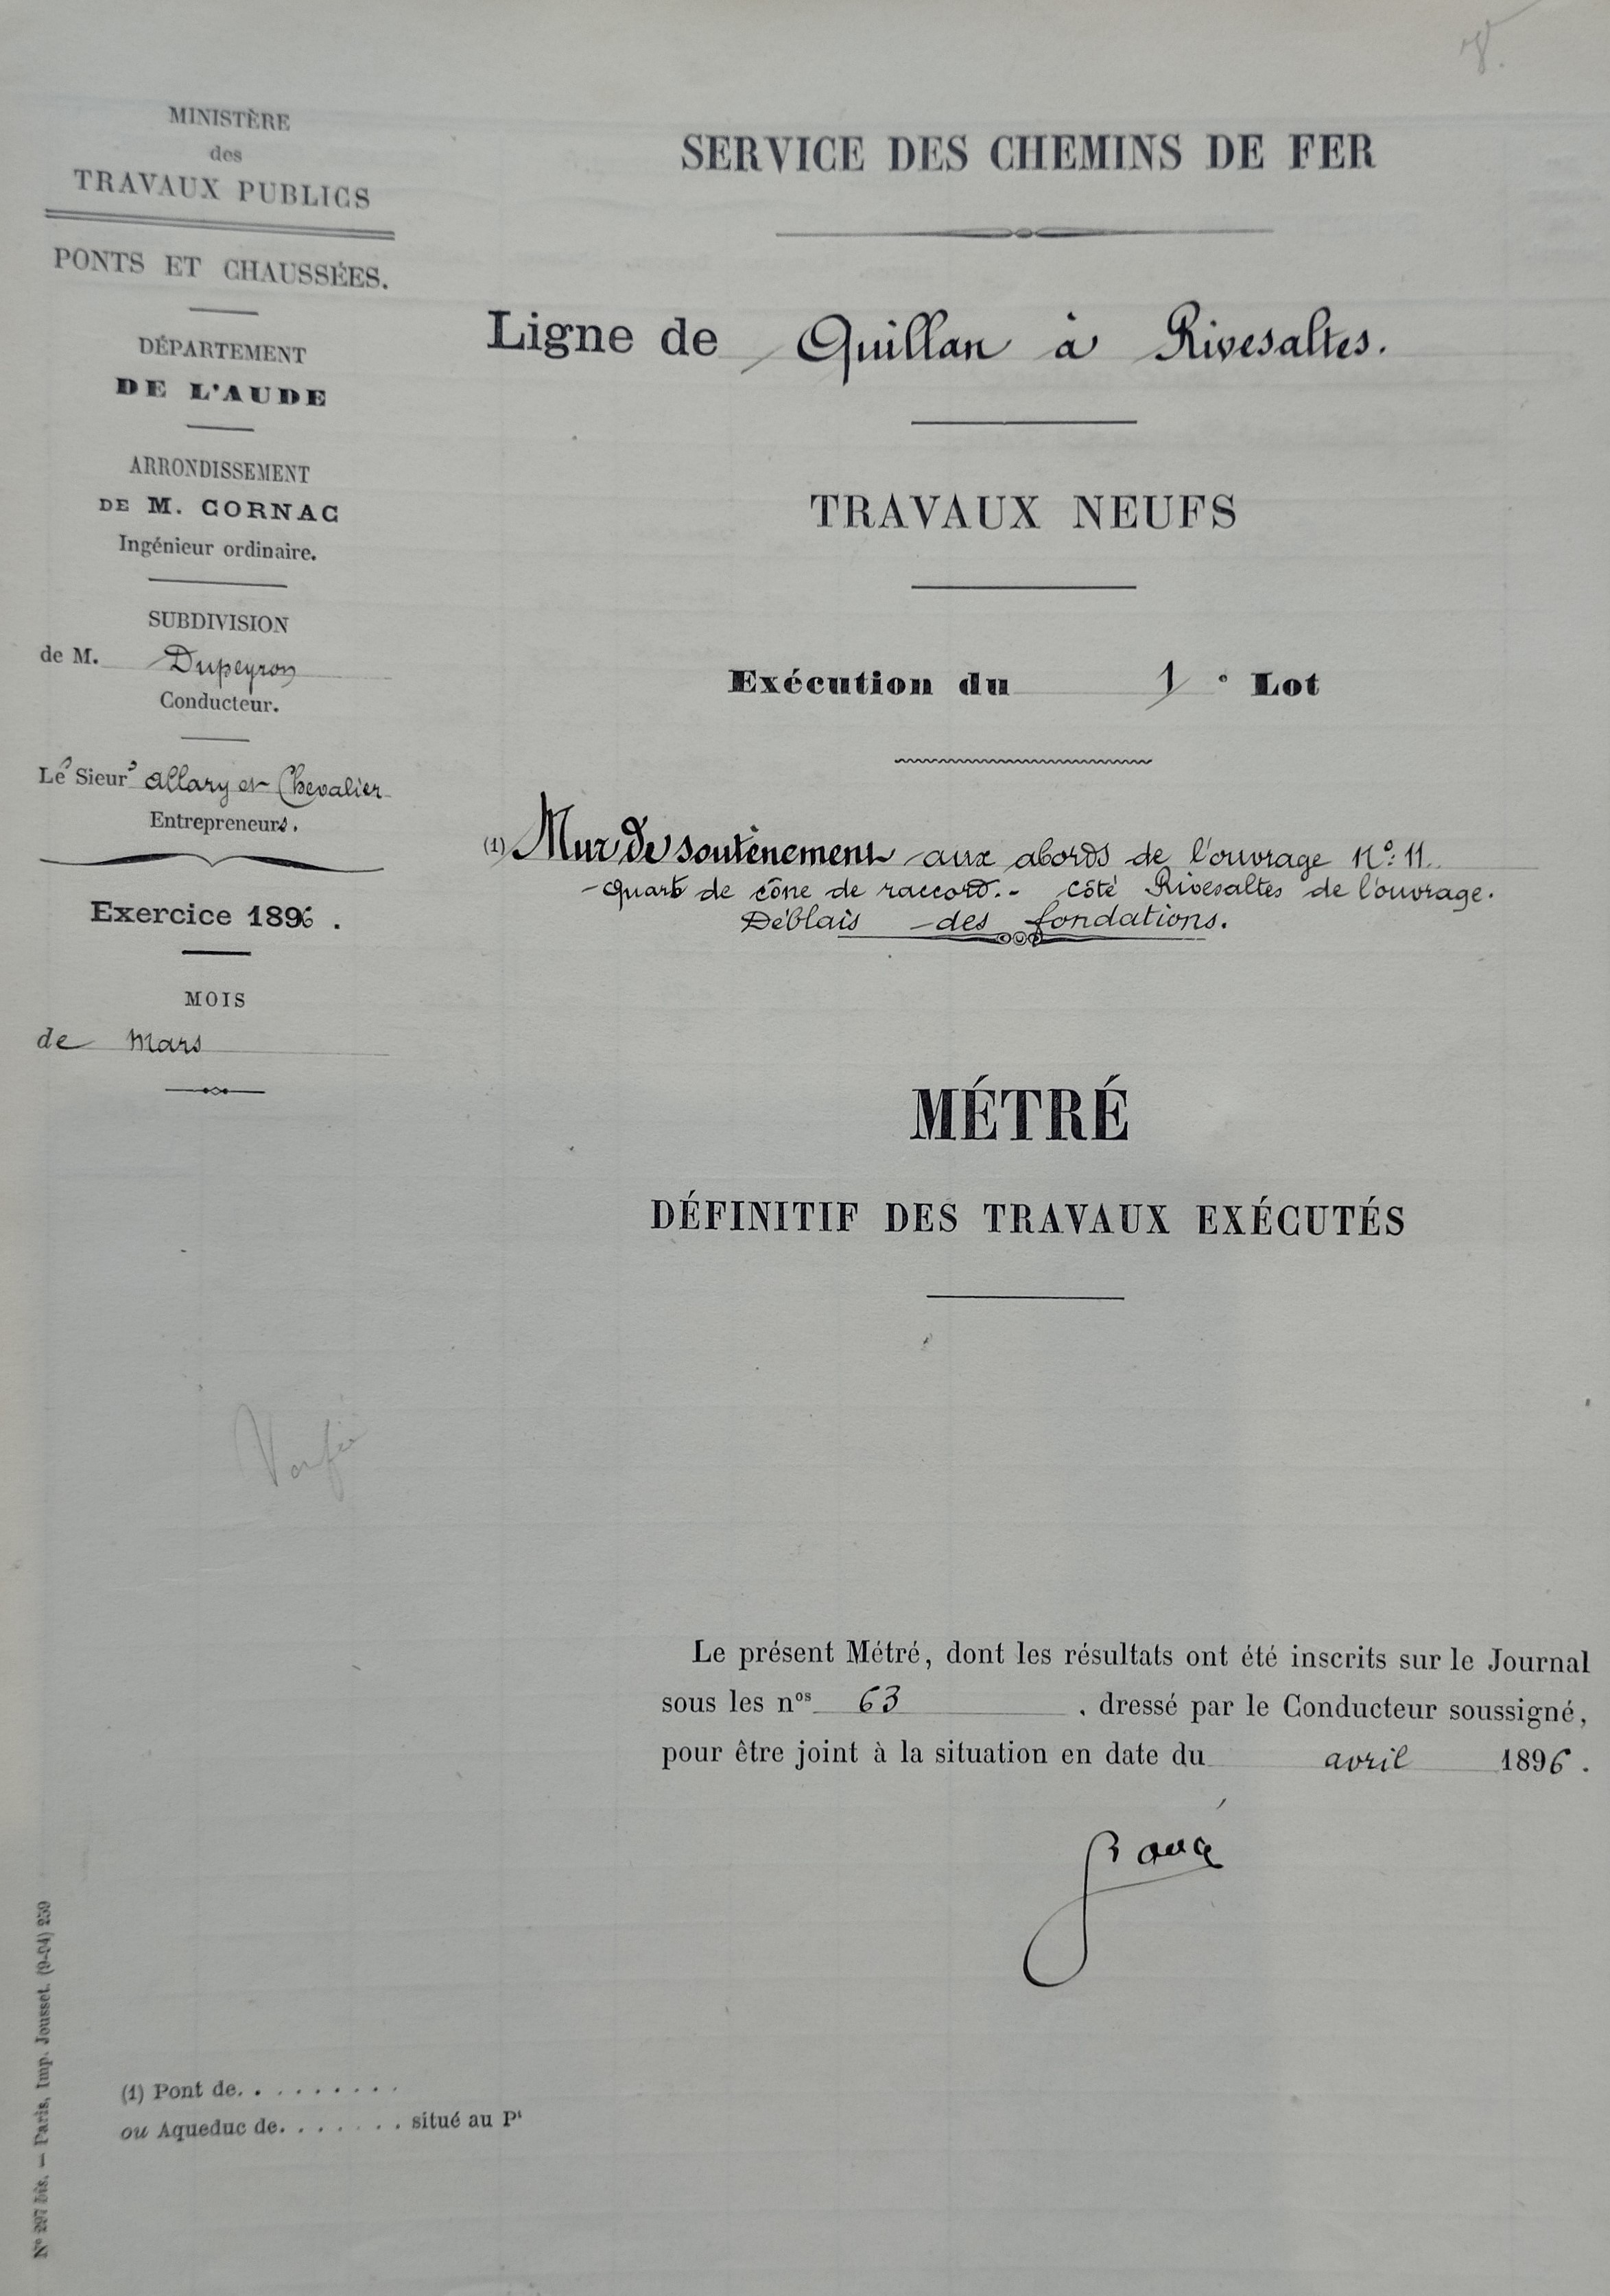 MINISTÈRE
des
TRAVAUX PUBLICS
PONTS ET CHAUSSÉES.
DÉPARTEMENT
DE L'AUDE
ARRONDISSEMENT
DE M. CORNAC
Ingénieur ordinaire.
SUBDIVISION
de M. Dupeyron
Conducteur.
Les Sieurs Allary et Chevalier
Entrepreneurs.
Exercice 1896.
MOIS
de Mars
SERVICE DES CHEMINS DE FER
Ligne de Quillan à Rivesaltes.
TRAVAUX NEUFS
Exécution du 1e Lot
(1) Mur de soutènement aux abords de l'ouvrage N°: 11.
- quart de cône de raccord. - côté Rivesaltes de l'ouvrage.
Déblais des fondations.
MÉTRÉ
DÉFINITIF DES TRAVAUX EXÉCUTÉS
Le présent Métré, dont les résultats ont été inscrits sur le Journal
sous les nos 63, dressé par le Conducteur soussigné,
pour être joint à la situation en date du avril 1896.
(1) Pont de. . . . . . . . . .
ou Aqueduc de. . . . . . . . situé au Pt
N° 297 bis. — Paris, Imp. Jousset. (9-94) 259